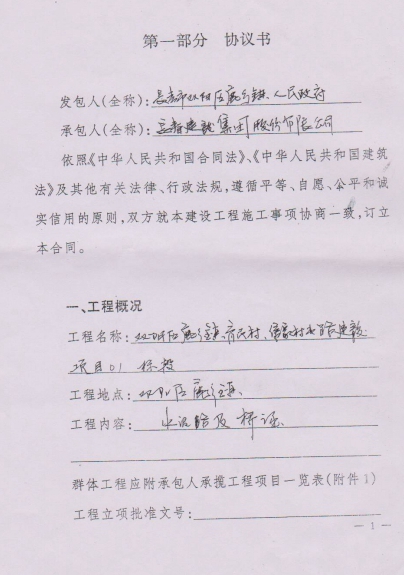 第一部分 协议书
发包人(全称):长春市双阳区鹿乡镇人民政府
承包人(全称):建设集团股份有限公司
依照《中华人民共和国合同法》、《中华人民共和国建筑
法》及其他有关法律、行政法规,遵循平等、自愿、公平和诚
实信用的原则,双方就本建设工程施工事项协商一致,订立
本合同。
一、工程概况
工程名称:双阳区鹿乡镇 村、 村水泥路建设
项目01标段
工程地点:双阳区鹿乡镇
工程内容:水泥路及桥涵
群体工程应附承包人承揽工程项目一览表(附件1)
工程立项批准文号:
— 1 —